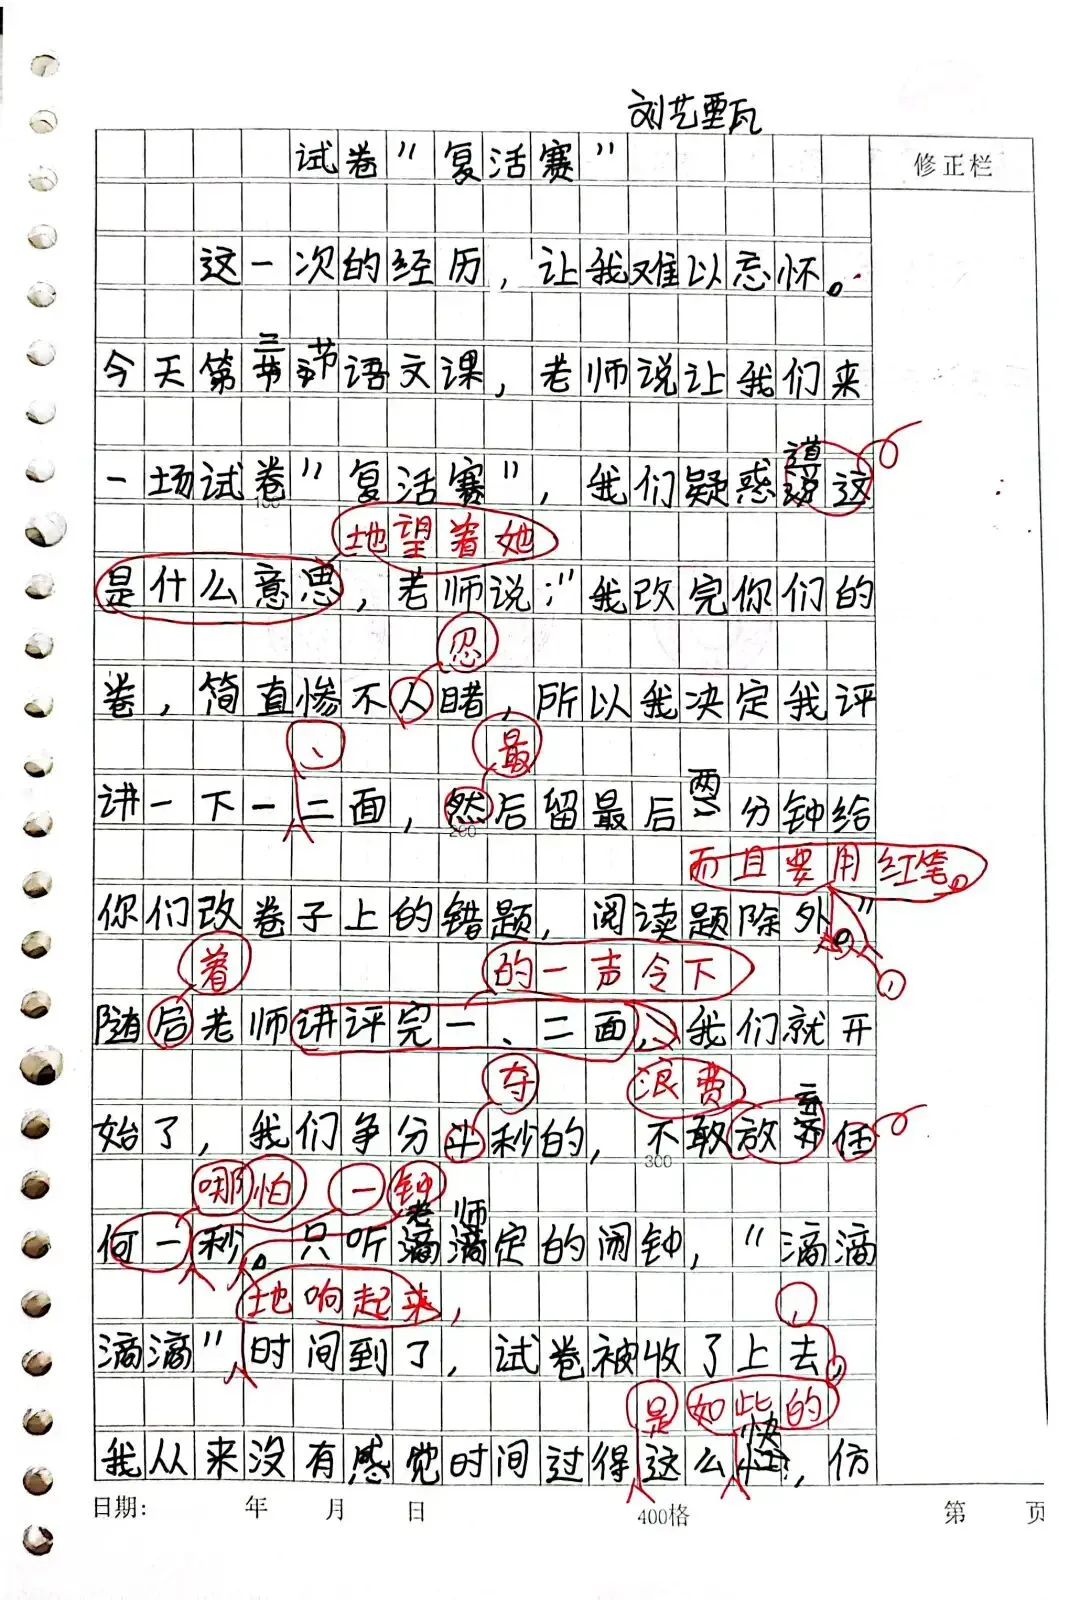 刘艺垔瓦
试卷“复活赛”
修正栏
这一次的经历，让我难以忘怀。
三 节
今天第节语文课，老师说让我们来
道
一场试卷“复活赛”，我们疑惑说这
100
地望着她
是什么意思，老师说：“我改完你们的
忍
卷，简直惨不人睹，所以我决定我评
、 最
两
讲一下一二面，然后留最后分钟给
200
而且要用红笔。
你们改卷子上的错题，阅读题除外。”
着 的一声令下 ，
随后老师讲评完一、二面，我们就开
夺 浪费
弃
始了，我们争分斗秒的，不敢放弃任
300
哪怕一钟
老师
何一秒。只听滴滴定的闹钟，“滴滴
地响起来，
滴滴”时间到了，试卷被收了上去。
，
是 如此的
快
我从来没有感觉时间过得这么，仿
日期： 年 月 日 400格 第 页